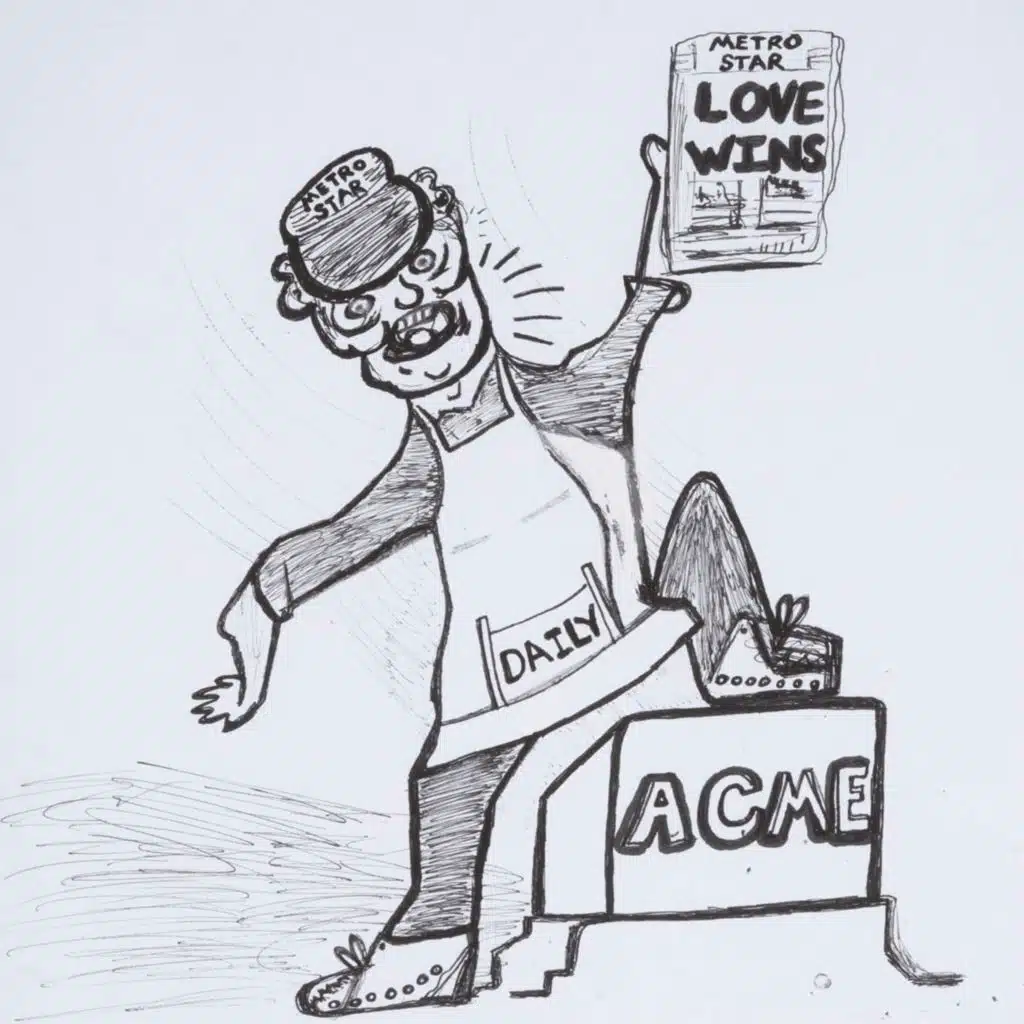 METRO
STAR
LOVE
WINS
METRO
STAR
DAILY
ACME